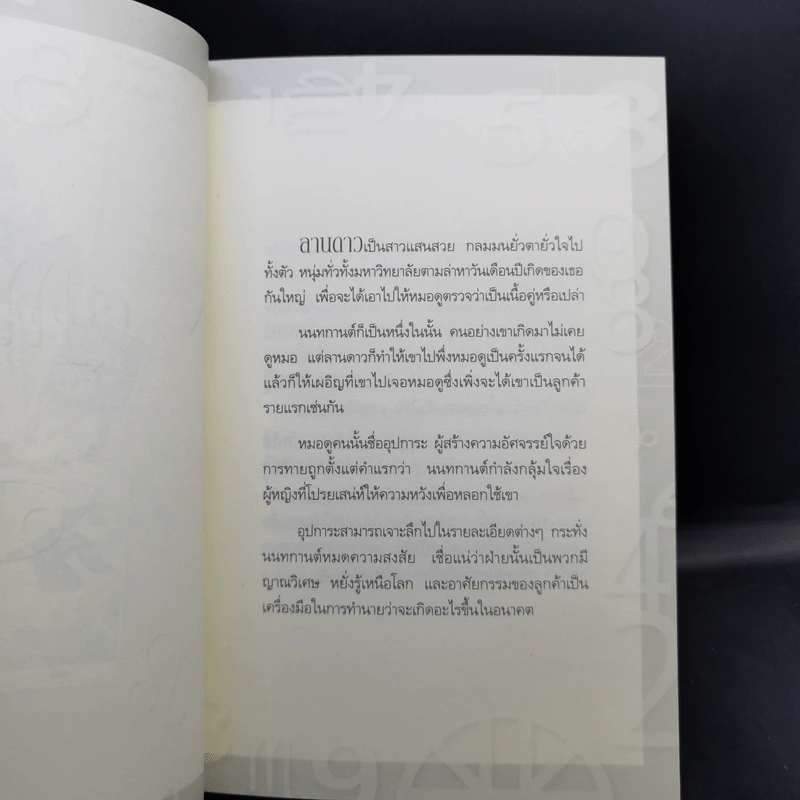 ลานดาวเป็นสาวแสนสวย กลมมนยั่วตายั่วใจไป
ทั้งตัว หนุ่มทั่วทั้งมหาวิทยาลัยตามล่าหาวันเดือนปีเกิดของเธอ
กันใหญ่ เพื่อจะได้เอาไปให้หมอดูตรวจว่าเป็นเนื้อคู่หรือเปล่า
นนทกานต์ก็เป็นหนึ่งในนั้น คนอย่างเขาเกิดมาไม่เคย
ดูหมอ แต่ลานดาวก็ทำให้เขาไปพึ่งหมอดูเป็นครั้งแรกจนได้
แล้วก็ให้เผอิญที่เขาไปเจอหมอดูซึ่งเพิ่งจะได้เขาเป็นลูกค้า
รายแรกเช่นกัน
หมอดูคนนั้นชื่ออุปการะ ผู้สร้างความอัศจรรย์ใจด้วย
การทายถูกตั้งแต่คำแรกว่า นนทกานต์กำลังกลุ้มใจเรื่อง
ผู้หญิงที่โปรยเสน่ห์ให้ความหวังเพื่อหลอกใช้เขา
อุปการะสามารถเจาะลึกไปในรายละเอียดต่างๆ กระทั่ง
นนทกานต์หมดความสงสัย เชื่อแน่ว่าฝ่ายนั้นเป็นพวกมี
ญาณวิเศษ หยั่งรู้เหนือโลก และอาศัยกรรมของลูกค้าเป็น
เครื่องมือในการทำนายว่าจะเกิดอะไรขึ้นในอนาคต